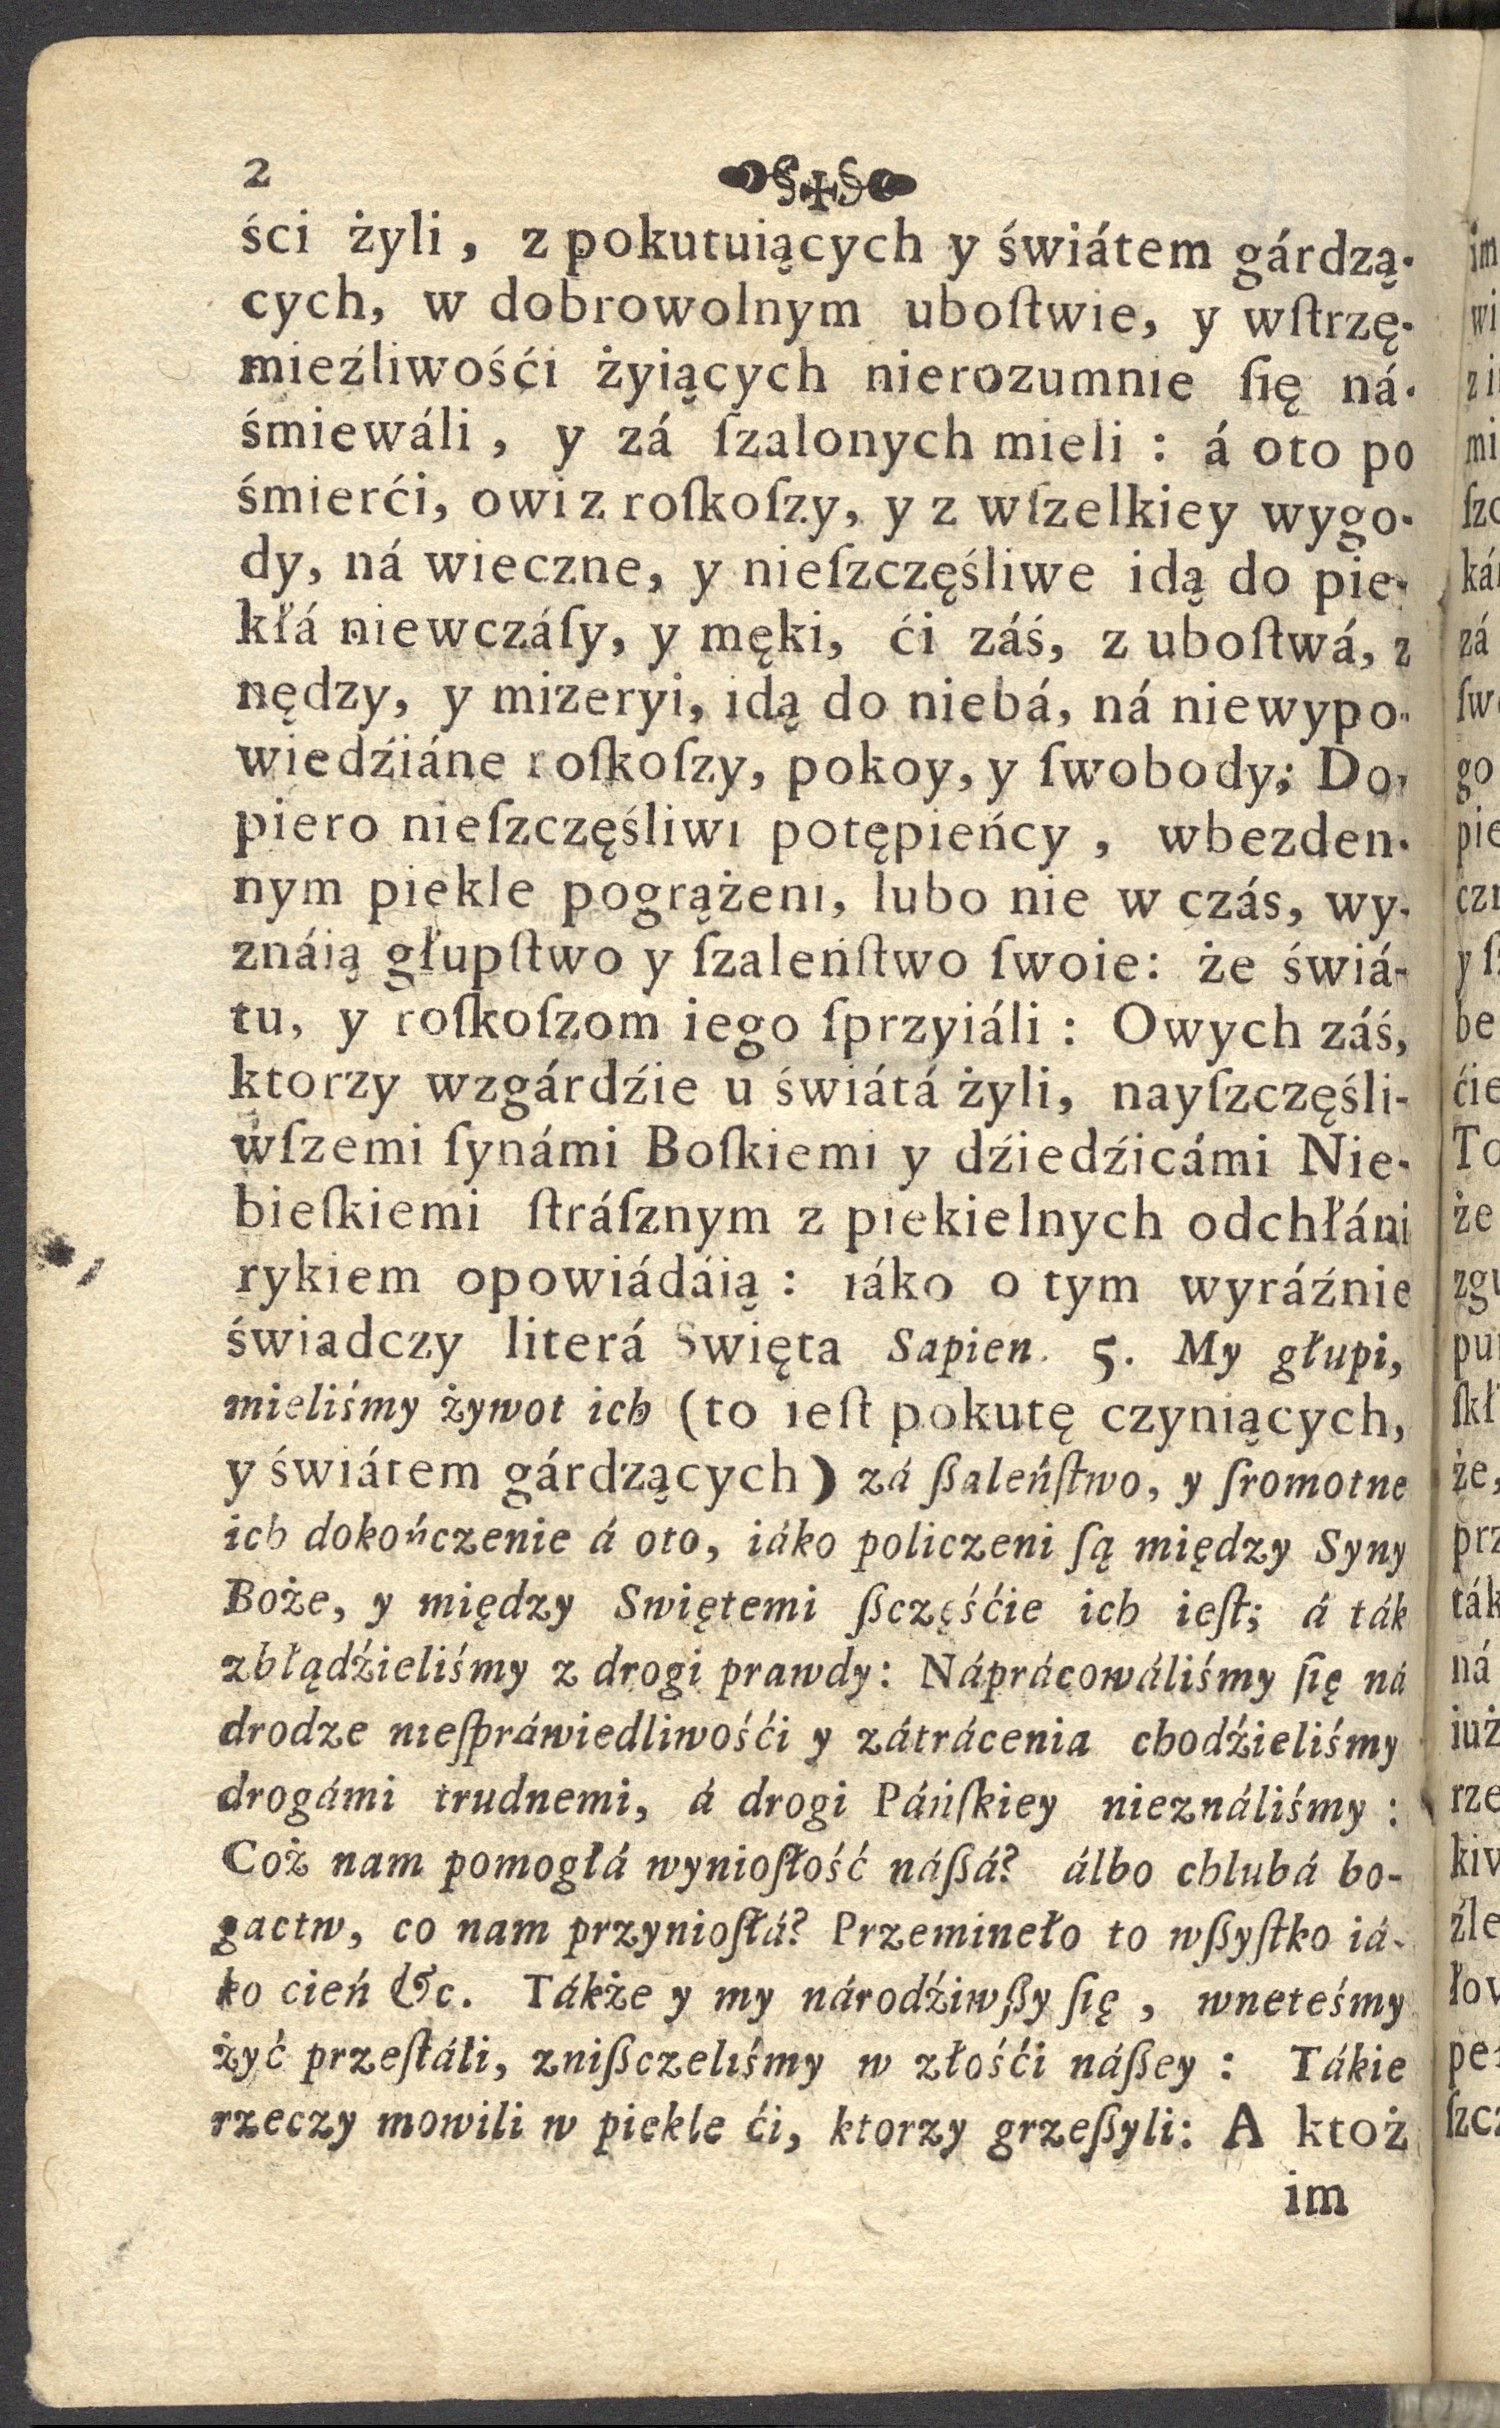 2
ści żyli, z pokutuiących y świátem gárdzą-
cych, w dobrowolnym uboſtwie, y wſtrzę-
mieźliwośći żyiących nierozumnie ſię ná-
śmiewáli, y zá ſzalonych mieli : á oto po
śmierći, owi z roſkoſzy, y z wſzelkiey wygo-
dy, ná wieczne, y nieſzczęśliwe idą do pie-
kłá niewczáſy, y męki, ći záś, z uboſtwá, z
nędzy, y mizeryi, idą do niebá, ná niewypo-
wiedźiáne roſkoſzy, pokoy, y ſwobody; Do-
piero nieſzczęśliwi potępieńcy, wbezden-
nym piekle pogrążeni, lubo nie w czás, wy-
znáią głupſtwo y ſzaleńſtwo ſwoie: że świá-
tu, y roſkoſzom iego ſprzyiáli : Owych záś,
ktorzy wzgárdźie u świátá żyli, nayſzczęśli-
wſzemi ſynámi Boſkiemi y dźiedźicámi Nie-
bieſkiemi ſtráſznym z piekielnych odchłáni
rykiem opowiádáią : iáko o tym wyráźnie
świadczy literá Swięta Sapien. 5. My głupi,
mieliśmy żywot ich (to ieſt pokutę czyniących,
y świátem gárdzących) zá ßaleńſtwo, y ſromotne
ich dokończenie á oto, iáko policzeni ſą między Syny
Boże, y między Swiętemi ßczęśćie ich ieſt; á ták
zbłądźieliśmy z drogi prawdy: Náprácowáliśmy ſię ná
drodze nieſpráwiedliwośći y zátrácenia chodźieliśmy
drogámi trudnemi, á drogi Páńſkiey nieználiśmy :
Coż nam pomogłá wynioſłość náßá? álbo chlubá bo-
gactw, co nam przynioſłá? Przemineło to wßyſtko iá-
ko cień &c. Tákże y my národźiwßy ſię, wneteśmy
żyć przeſtáli, znißczeliśmy w złośći náßey : Tákie
rzeczy mowili w piekle ći, ktorzy grzeßyli: A ktoż
im